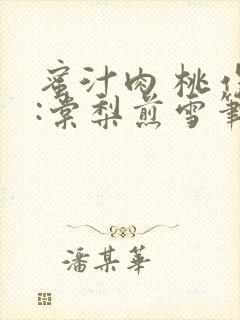 蜜汁肉桃作
:棠梨煎雪筆
潘某華